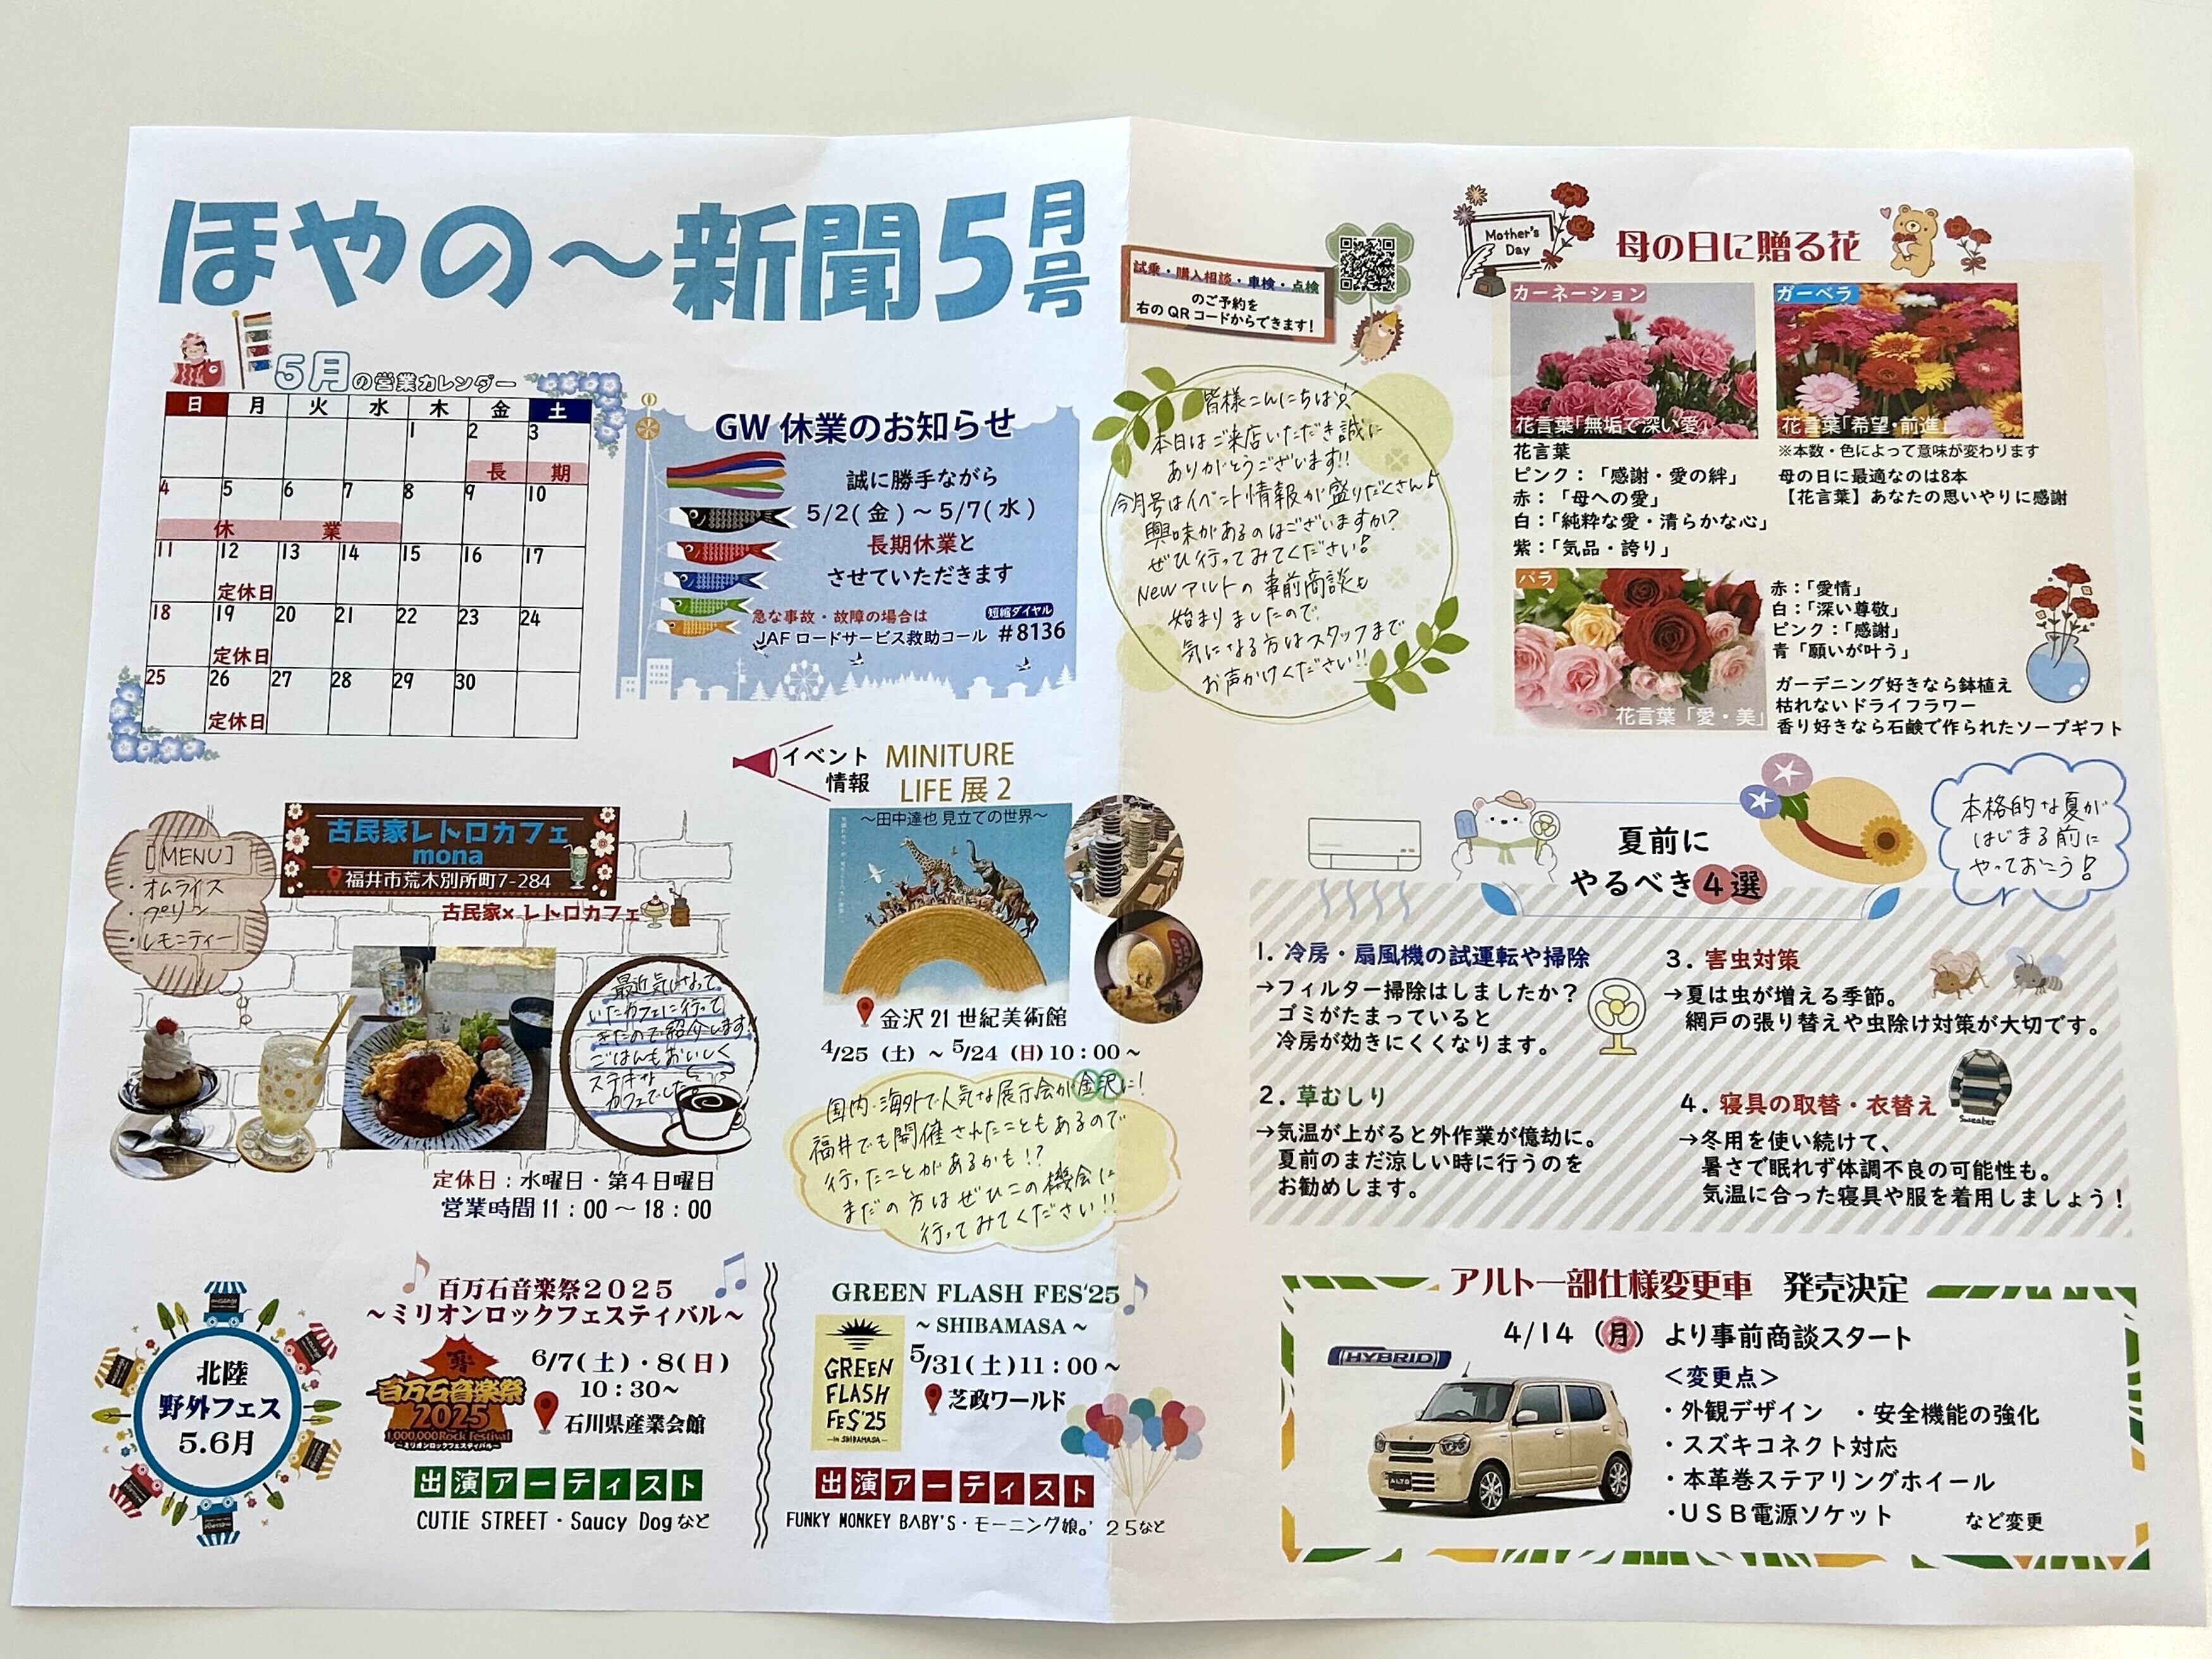 ほやの～新聞5月号
5月の営業カレンダー
日 月 火 水 木 金 土
1 2 3
長 期
4 5 6 7 8 9 10
休 業
11 12 13 14 15 16 17
定休日
18 19 20 21 22 23 24
定休日
25 26 27 28 29 30
定休日
GW 休業のお知らせ
誠に勝手ながら
5/2(金)～5/7(水)
長期休業と
させていただきます
急な事故・故障の場合は
短縮ダイヤル
JAFロードサービス救助コール #8136
[MENU]
・オムライス
・プリン
・レモニティー
古民家レトロカフェ
mona
福井市荒木別所町7-284
古民家×レトロカフェ
最近気になって
いたカフェに行って
きたので紹介します!!
ごはんもおいしく
ステキな
カフェでした
定休日：水曜日・第4日曜日
営業時間11：00～18：00
イベント
情報
MINITURE
LIFE 展 2
～田中達也 見立ての世界～
金沢 21 世紀美術館
4/25（土）～5/24（日）10：00～
国内・海外で人気な展示会が金沢に!
福井でも開催されたこともあるので
行ったことがあるかも!?
まだの方はぜひこの機会に
行ってみてください!!
北陸
野外フェス
5.6月
百万石音楽祭2025
～ミリオンロックフェスティバル～
百万石音楽祭
2025
1,000,000Rock Festival
～ミリオンロックフェスティバル～
6/7(土)・8(日)
10：30～
石川県産業会館
出演アーティスト
CUTIE STREET・Saucy Dogなど
GREEN FLASH FES'25
～SHIBAMASA～
GREEN
FLASH
FES'25
in SHIBAMASA
5/31(土)11：00～
芝政ワールド
出演アーティスト
FUNKY MONKEY BABY'S・モーニング娘。'25など
試乗・購入相談・車検・点検
のご予約を
右のQRコードからできます!
皆様こんにちは
本日はご来店いただき誠に
ありがとうございます!!
今月号はイベント情報が盛りだくさん♪
興味があるのはございますか?
ぜひ行ってみてください!
NEWアルトの事前商談も
始まりましたので
気になる方はスタッフまで
お声かけください!!
Mother's
Day
母の日に贈る花
カーネーション
花言葉「無垢で深い愛」
花言葉
ピンク：「感謝・愛の絆」
赤：「母への愛」
白：「純粋な愛・清らかな心」
紫：「気品・誇り」
ガーベラ
花言葉「希望・前進」
※本数・色によって意味が変わります
母の日に最適なのは8本
【花言葉】あなたの思いやりに感謝
バラ
花言葉「愛・美」
赤：「愛情」
白：「深い尊敬」
ピンク：「感謝」
青「願いが叶う」
ガーデニング好きなら鉢植え
枯れないドライフラワー
香り好きなら石鹸で作られたソープギフト
夏前に
やるべき4選
本格的な夏が
はじまる前に
やっておこう!
1. 冷房・扇風機の試運転や掃除
→フィルター掃除はしましたか？
ゴミがたまっていると
冷房が効きにくくなります。
2. 草むしり
→気温が上がると外作業が億劫に。
夏前のまだ涼しい時に行うのを
お勧めします。
3. 害虫対策
→夏は虫が増える季節。
網戸の張り替えや虫除け対策が大切です。
4. 寝具の取替・衣替え
Sweater
→冬用を使い続けて、
暑さで眠れず体調不良の可能性も。
気温に合った寝具や服を着用しましょう！
アルト一部仕様変更車 発売決定
4/14（月）より事前商談スタート
HYBRID
ALTO
＜変更点＞
・外観デザイン ・安全機能の強化
・スズキコネクト対応
・本革巻ステアリングホイール
・USB電源ソケット など変更